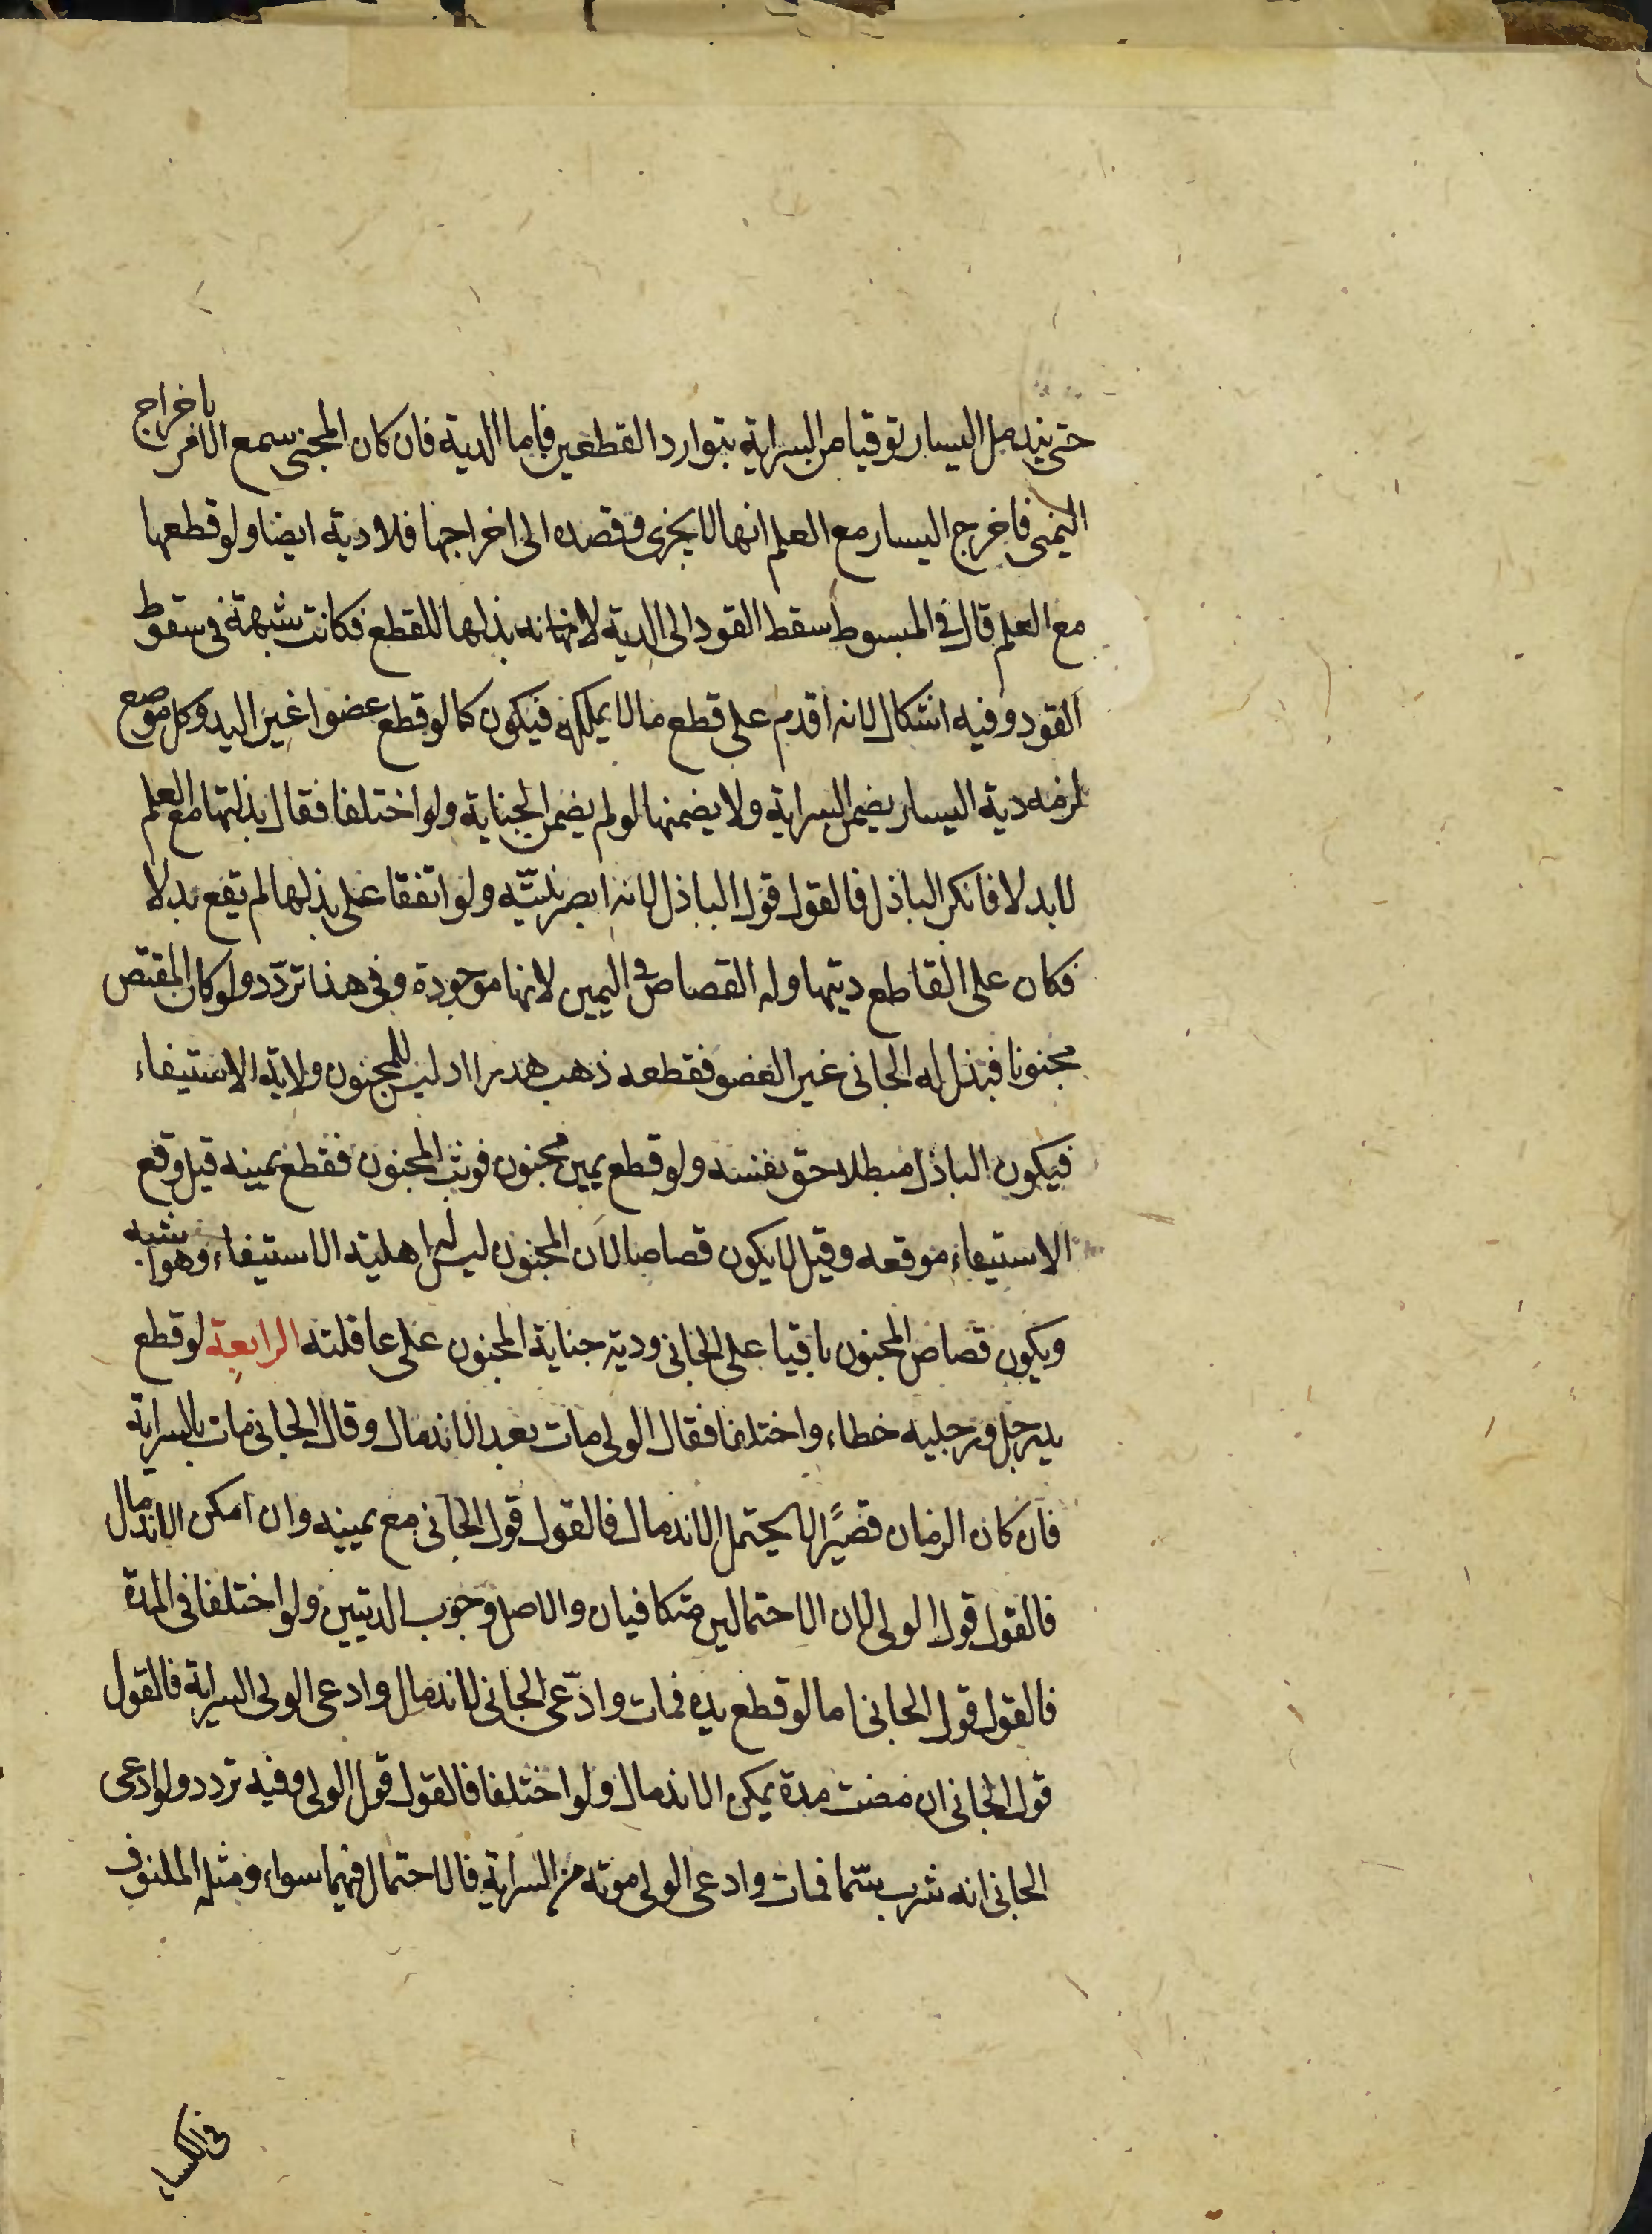 حتى يندمل اليسار توقيا من السراية بتوارد القطعين فاما الدية فان كان المجنى سمع الامر باخراج
اليمنى فاخرج اليسار مع العلم انها لا يجزى و قصده الى اخراجها فلا دية ايضا ولو قطعها
مع العلم قال فى المبسوط سقط القود الى الدية لانه بذلها للقطع فكانت شبهة فى سقوط
القود وفيه اشكال لانه اقدم على قطع ما لا يملكه فيكون كما لو قطع عضوا غير اليد وكل موضع
لزمه دية اليسار يضمن السراية ولا يضمنها لو لم يضمن الجناية ولو اختلفا فقال بذلتها مع العلم
لا بدلا فانكر الباذل فالقول قول الباذل لانه ابصر بنيّته ولو اتفقا على بذلها لم تقع بدلا
فكان على القاطع ديتها وله القصاص فى اليمين لانها موجودة وفى هذا تردّد ولو كان المقتص
مجنونا فبذل له الجانى غير العضو فقطعه ذهب هدرا اذ ليس للمجنون ولاية الاستيفاء
فيكون الباذل مبطلا حق نفسه ولو قطع يمين مجنون فوثب المجنون فقطع يمينه قيل وقع
الاستيفاء موقعه وقيل لا يكون قصاصا لان المجنون ليس له اهلية الاستيفاء وهو اشبه
ويكون قصاص المجنون باقيا على الجانى ودية جناية المجنون على عاقلته الرابعة لو قطع
يد رجل ورجليه خطاء واختلفا فقال الولى مات بعد الاندمال وقال الجانى مات بالسراية
فان كان الزمان قصيرا لا يحتمل الاندمال فالقول قول الجانى مع يمينه وان امكن الاندمال
فالقول قول الولى لان الاحتمالين متكافيان والاصل وجوب الديتين ولو اختلفا فى المدة
فالقول قول الجانى اما لو قطع يده فمات وادّعى الجانى الاندمال وادعى الولى السراية فالقول
قول الجانى ان مضت مدة يمكن الاندمال ولو اختلفا فالقول قول الولى وفيه تردد ولو ادعى
الجانى انه شرب سمّا فمات وادعى الولى موته من السراية فالاحتمال فيهما سواء ومثله الملفوف
فى الكساء